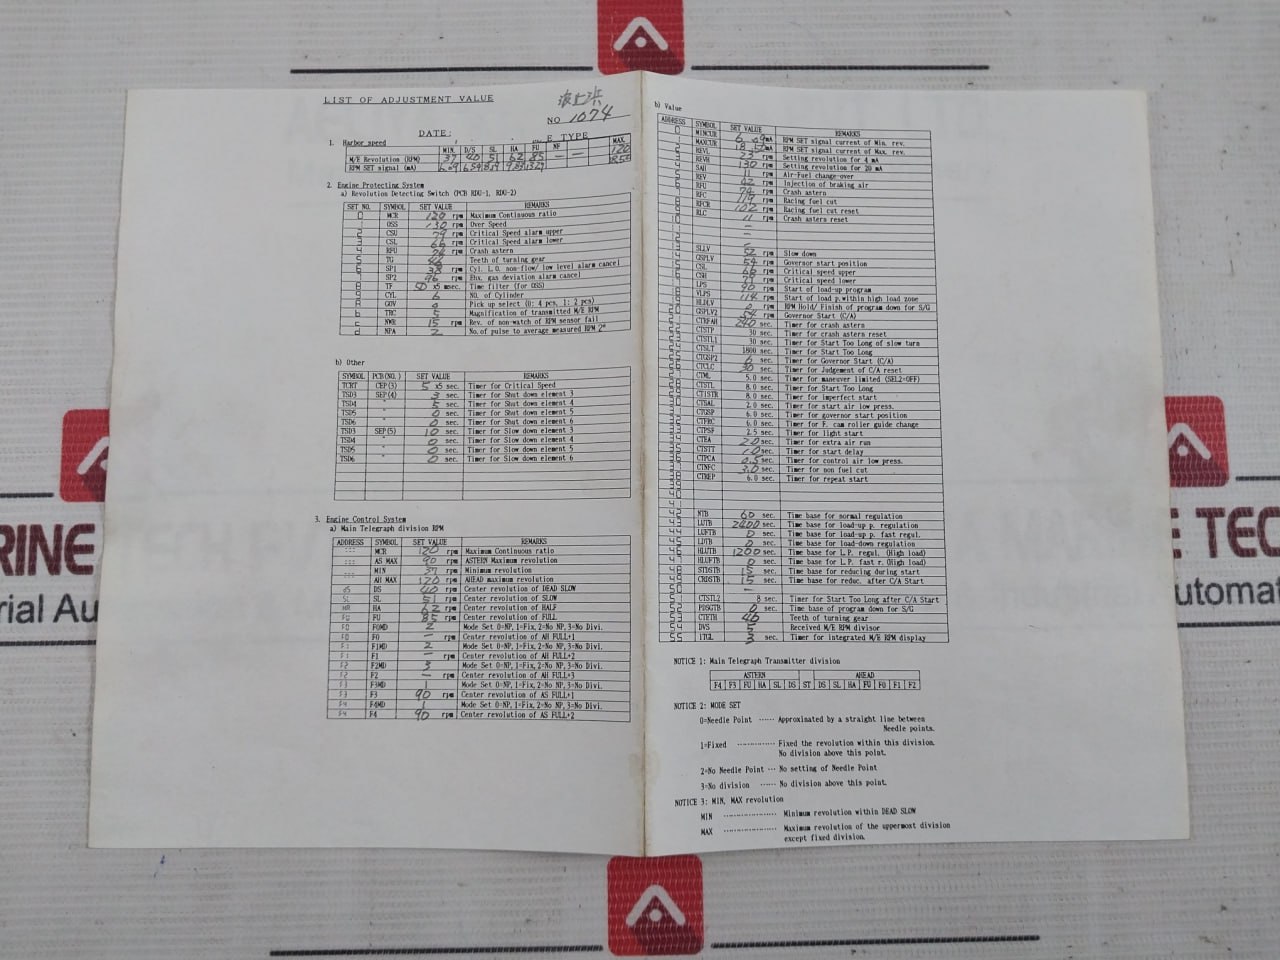 LIST OF ADJUSTMENT VALUE
NO 1074
DATE:
E TYPE
1. Harbor speed
MIN. D/S SL HA FU NF MAX.
M/E Revolution (RPM) 37 40 51 62 85 — — 120
RPM SET signal (mA)
2. Engine Protecting System
a) Revolution Detecting Switch (PCB RDU-1, RDU-2)
SET NO. SYMBOL SET VALUE REMARKS
0 MCR 120 rpm Maximum Continuous ratio
1 OSS 130 rpm Over Speed
2 CSU 79 rpm Critical Speed alarm upper
3 CSL 66 rpm Critical Speed alarm lower
4 RFU rpm Crash astern
5 TG Teeth of turning gear
6 SP1 38 rpm Cyl. L.O. non-flow/ low level alarm cancel
SP2 96 rpm Exh. gas deviation alarm cancel
8 TF 50 x5 msec. Time filter (for OSS)
9 CYL 6 NO. of Cylinder
GOV Pick up select (0: 4 pcs, 1: 2 pcs)
b TRC 5 Magnification of transmitted M/E RPM
c NWR 15 rpm Rev. of non-watch of RPM sensor fail
d NPA 2 No. of pulse to average measured RPM
b) Other
SYMBOL PCB(NO.) SET VALUE REMARKS
TCRT CEP(3) 5 x5 sec. Timer for Critical Speed
TSD3 SEP(4) 3 sec. Timer for Shut down element 3
TSD4 " 5 sec. Timer for Shut down element 4
TSD5 " 0 sec. Timer for Shut down element 5
TSD6 " 0 sec. Timer for Shut down element 6
TSD3 SEP(5) 10 sec. Timer for Slow down element 3
TSD4 " 0 sec. Timer for Slow down element 4
TSD5 " 0 sec. Timer for Slow down element 5
TSD6 " 0 sec. Timer for Slow down element 6
3. Engine Control System
a) Main Telegraph division RPM
ADDRESS SYMBOL SET VALUE REMARKS
MCR 120 rpm Maximum Continuous ratio
AS MAX 90 rpm ASTERN Maximum revolution
MIN 37 rpm Minimum revolution
AH MAX 120 rpm AHEAD maximum revolution
dS DS 40 rpm Center revolution of DEAD SLOW
SL SL 51 rpm Center revolution of SLOW
HA HA 62 rpm Center revolution of HALF
FU FU 85 rpm Center revolution of FULL
F0 F0MD 2 Mode Set 0=NP, 1=Fix, 2=No NP, 3=No Divi.
F0 F0 — rpm Center revolution of AH FULL+1
F1 F1MD 2 Mode Set 0=NP, 1=Fix, 2=No NP, 3=No Divi.
F1 F1 — rpm Center revolution of AH FULL+2
F2 F2MD 3 Mode Set 0=NP, 1=Fix, 2=No NP, 3=No Divi.
F2 F2 — rpm Center revolution of AH FULL+3
F3 F3MD 1 Mode Set 0=NP, 1=Fix, 2=No NP, 3=No Divi.
F3 F3 90 rpm Center revolution of AS FULL+1
F4 F4MD 1 Mode Set 0=NP, 1=Fix, 2=No NP, 3=No Divi.
F4 F4 90 rpm Center revolution of AS FULL+2
b) Value
ADDRESS SYMBOL SET VALUE REMARKS
0 MINCUR mA RPM SET signal current of Min. rev.
MAXCUR mA RPM SET signal current of Max. rev.
2 REVL 23 rpm Setting revolution for 4 mA
REVH 130 rpm Setting revolution for 20 mA
4 SAH 11 rpm Air-Fuel change-over
5 REV 42 rpm Injection of braking air
6 RFU rpm Crash astern
RFC 119 rpm Racing fuel cut
8 RFCR 102 rpm Racing fuel cut reset
RLC 11 rpm Crash astern reset
10 —
—
12 —
13 SLLV 52 rpm Slow down
14 GSPLV 54 rpm Governor start position
CSL 66 rpm Critical speed upper
CSH rpm Critical speed lower
LPS 90 rpm Start of load-up program
VLPS 114 rpm Start of load p. within high load zone
HLDLV 0 rpm RPM Hold/ Finish of program down for S/G
GSPLV2 54 rpm Governor Start (C/A)
CTRFAH 240 sec. Timer for crash astern
CTSTP 30 sec. Timer for crash astern reset
CTSTL1 30 sec. Timer for Start Too Long of slow turn
CTSLT 1800 sec. Timer for Start Too Long
CTGSP2 6 sec. Timer for Governor Start (C/A)
CTCLC 30 sec. Timer for Judgement of C/A reset
CTML 5.0 sec. Timer for maneuver limited (SEL2=OFF)
CTSTL 8.0 sec. Timer for Start Too Long
CTISTR 8.0 sec. Timer for imperfect start
30 CTSAL 2.0 sec. Timer for start air low press.
CTGSP 6.0 sec. Timer for governor start position
CTFRC 6.0 sec. Timer for F. cam roller guide change
CTPSF 2.5 sec. Timer for light start
34 CTEA 2.0 sec. Timer for extra air run
35 CTSTT 1.0 sec. Timer for start delay
36 CTPCA 0.5 sec. Timer for control air low press.
37 CTNFC 3.0 sec. Timer for non fuel cut
38 CTREP 6.0 sec. Timer for repeat start
39
40
41
42 NTB 60 sec. Time base for normal regulation
43 LUTB 2400 sec. Time base for load-up p. regulation
44 LUFTB 0 sec. Time base for load-up p. fast regul.
45 LDTB 0 sec. Time base for load-down regulation
46 HLUTB 1200 sec. Time base for L.P. regul. (High load)
47 HLUFTB 0 sec. Time base for L.P. fast r. (High load)
48 STDSTB 15 sec. Time base for reducing during start
49 CRDSTB 15 sec. Time base for reduc. after C/A Start
50 —
51 CTSTL2 8 sec. Timer for Start Too Long after C/A Start
52 PDSGTB 0 sec. Time base of program down for S/G
53 CTETH 46 Teeth of turning gear
54 DVS 5 Received M/E RPM divisor
55 ITGL 3 sec. Timer for integrated M/E RPM display
NOTICE 1: Main Telegraph Transmitter division
ASTERN AHEAD
F4 F3 FU HA SL DS ST DS SL HA FU F0 F1 F2
NOTICE 2: MODE SET
0=Needle Point ...... Approximated by a straight line between
Needle points.
1=Fixed .............. Fixed the revolution within this division.
No division above this point.
2=No Needle Point ... No setting of Needle Point
3=No division ...... No division above this point.
NOTICE 3: MIN, MAX revolution
MIN .................... Minimum revolution within DEAD SLOW
MAX .................... Maximum revolution of the uppermost division
except fixed division.
RINE
rial Au
E TEC
utomat